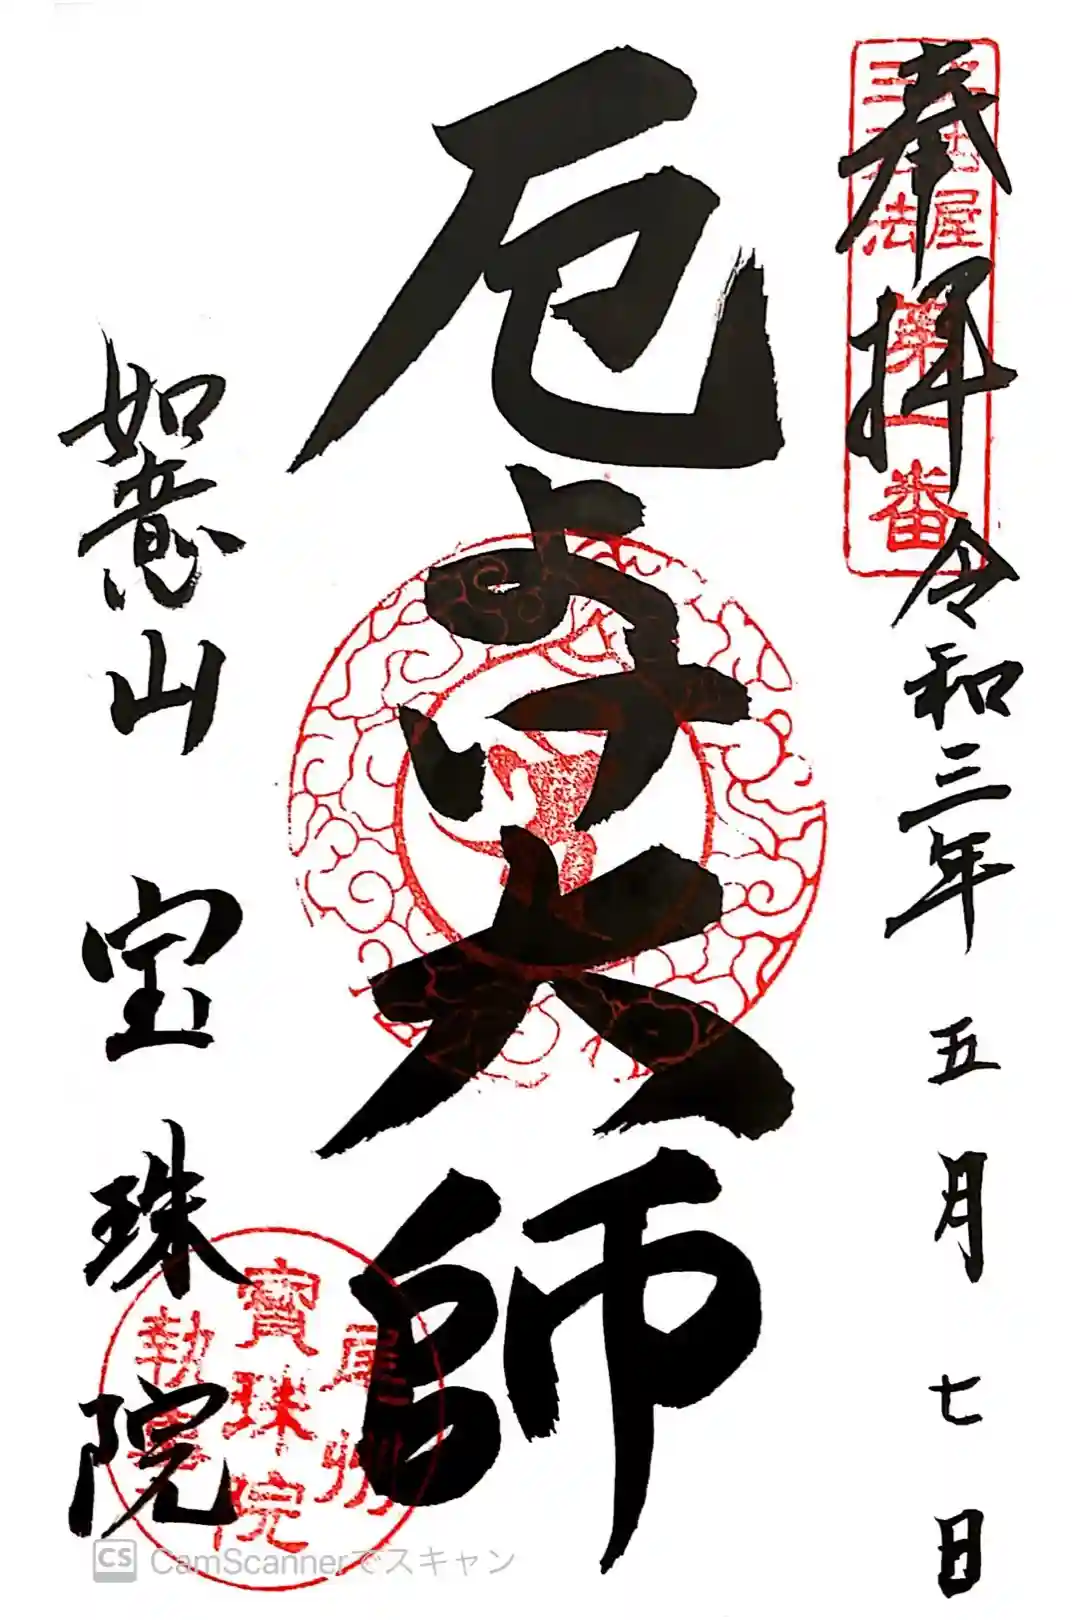 奉拝 令和三年五月七日
屋
法
第一番
厄よけ大師
如意山 宝珠院
尾州
寶珠院
執事
CS CamScannerでスキャン